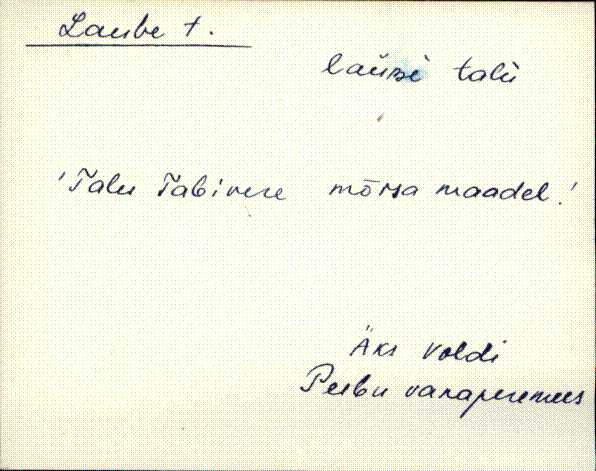 Laube t.
laube talu
'Talu Tabivere mõisa maadel.'
Äks Voldi
Peebu vanaperemees